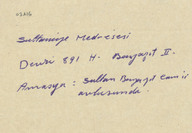 Sultaniye Medresesi
Devri 891 H. Bayazıt II.
Amasya : Sultan Bayazıt Camii
avlusunda.